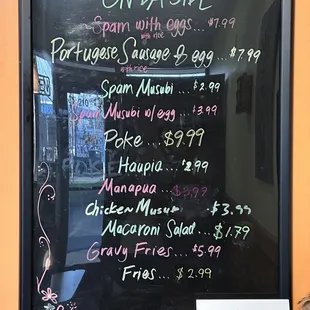 ON DA SIDE
Spam with eggs... $7.99
with rice
Portugese Sausage & egg... $7.99
with rice
Spam Musubi... $2.99
Spam Musubi w/egg... $3.99
Poke... $9.99
Haupia... $2.99
Manapua... $3.99
Chicken Musubi $3.99
Macaroni Salad... $1.79
Gravy Fries... $5.99
Fries... $2.99